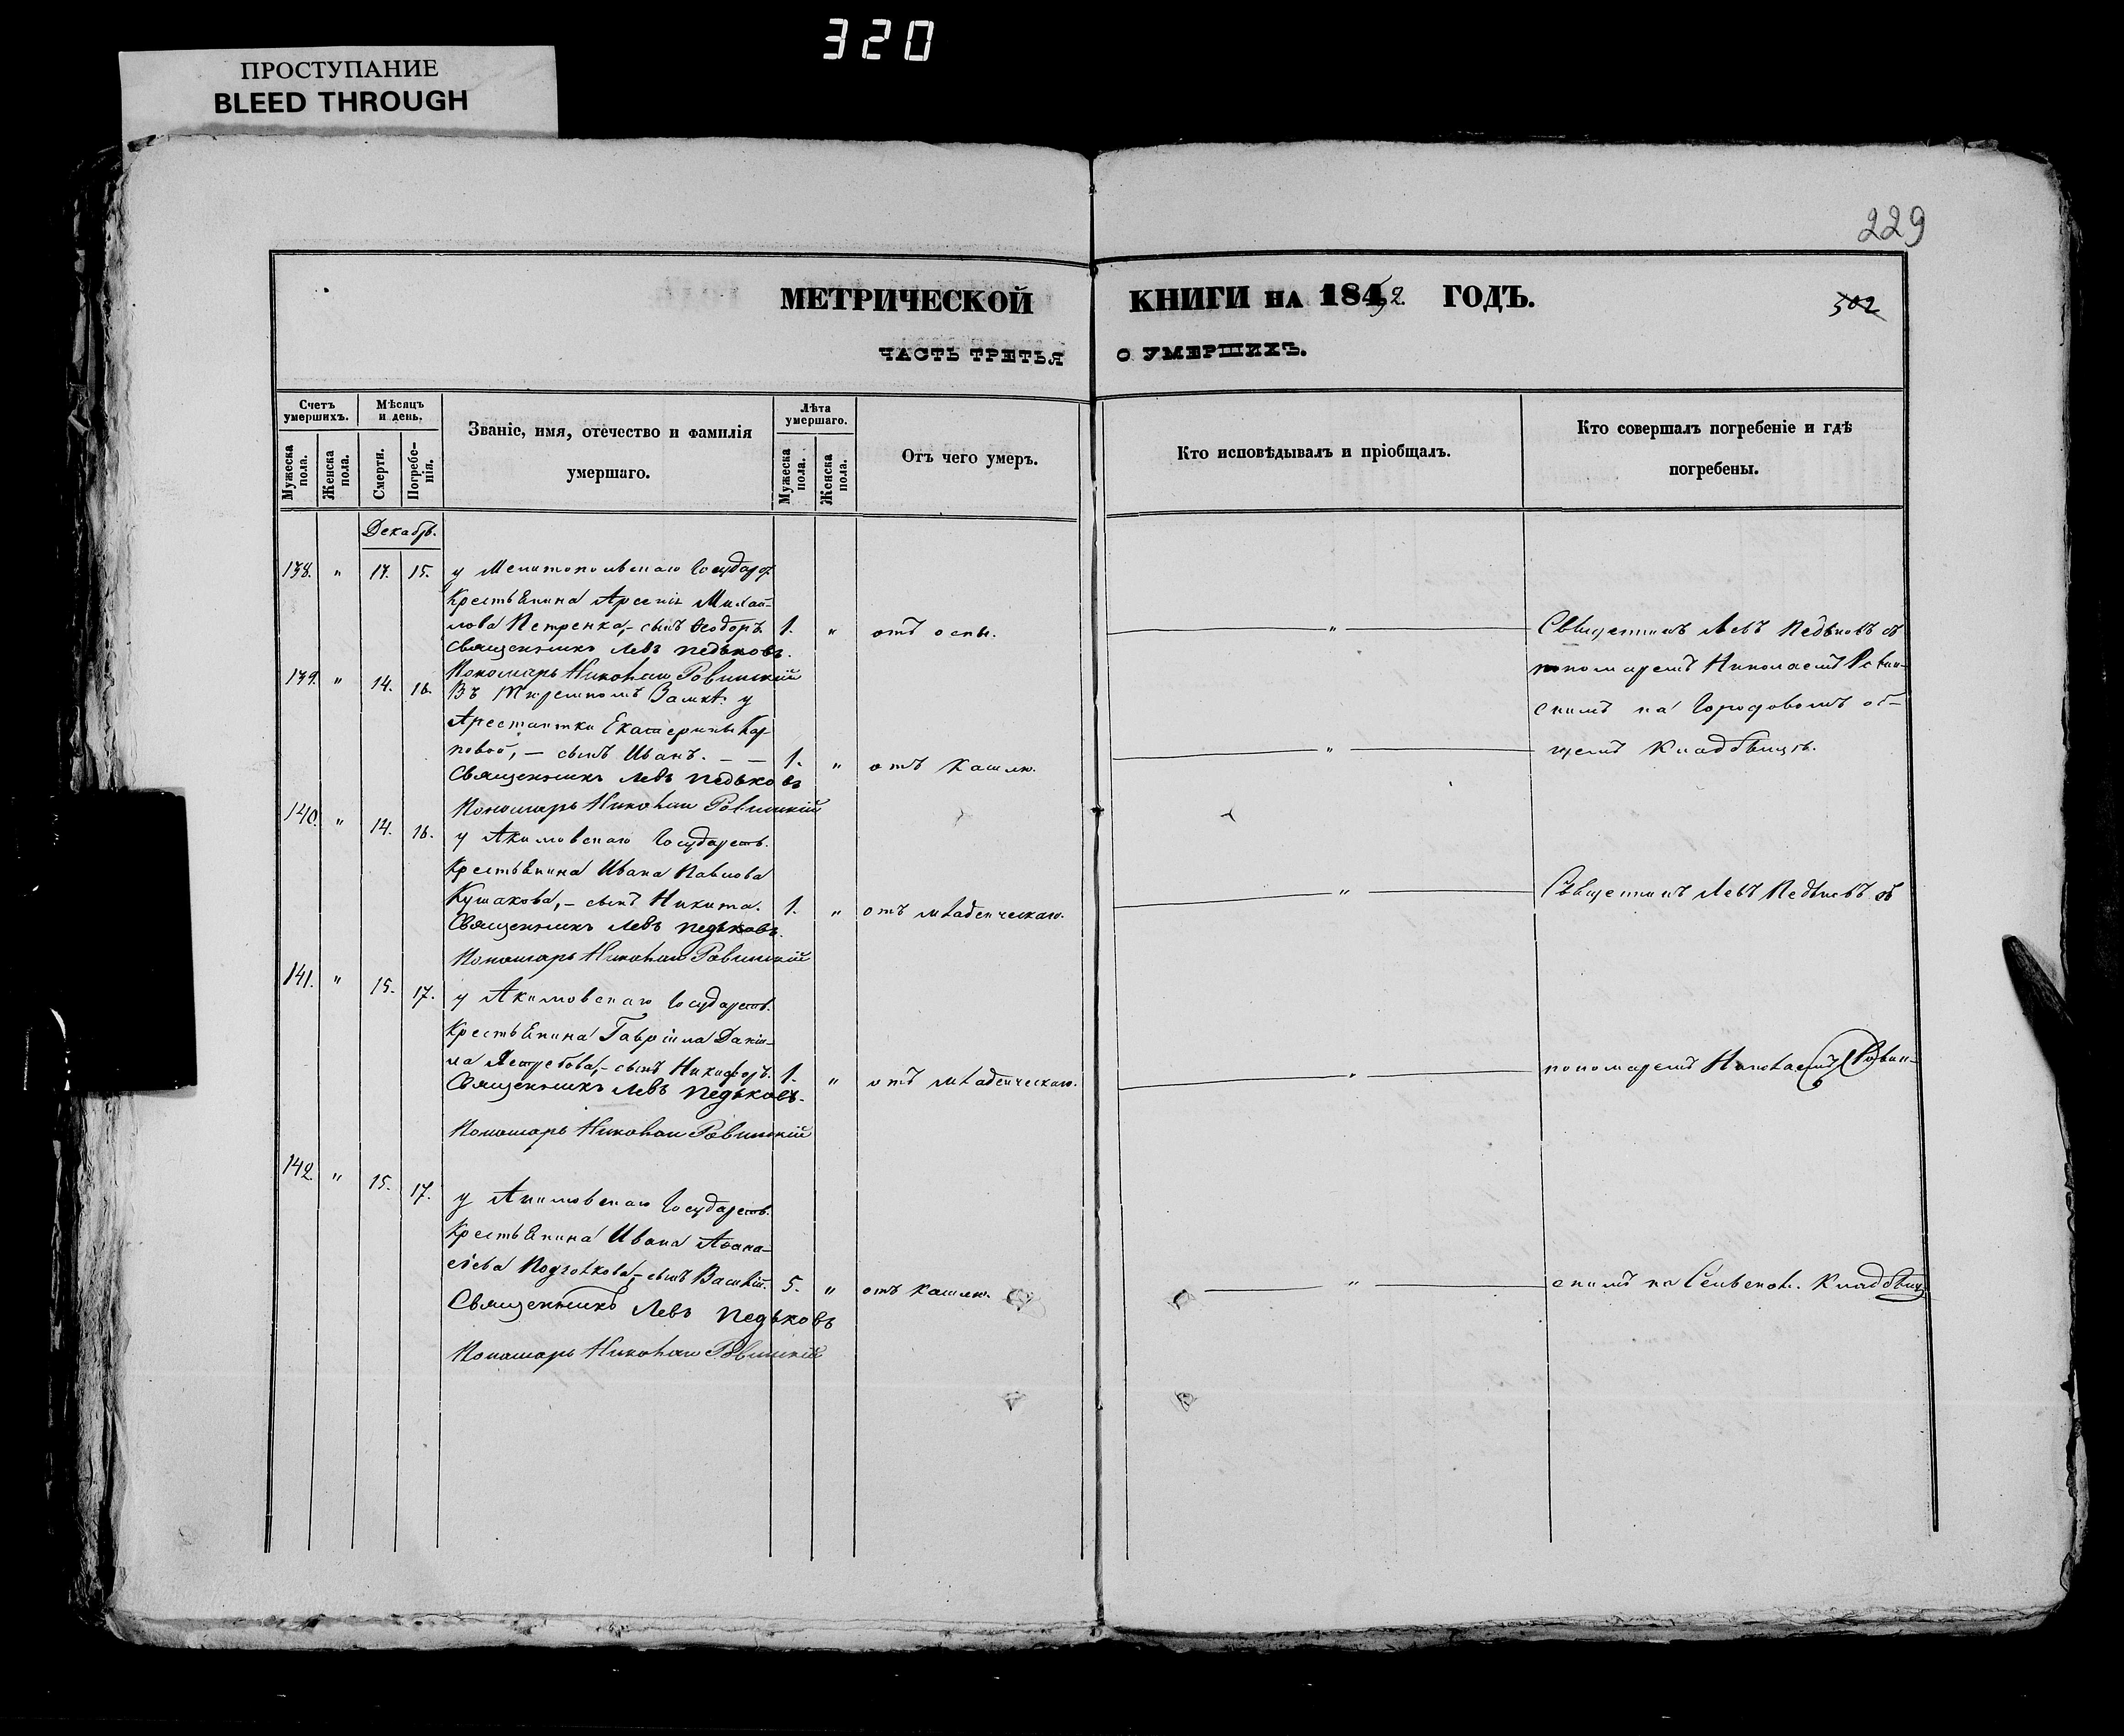 320
ПРОСТУПАНИЕ
BLEED THROUGH
229
МЕТРИЧЕСКОЙ КНИГИ НА 1852. ГОДЪ.
502
ЧАСТЬ ТРЕТЬЯ О УМЕРШИХЪ.
Счетъ умершихъ.
Мужеска пола.
Женска пола.
Мѣсяцъ и день.
Смерти.
Погребе-нія.
Званіе, имя, отечество и фамилія
умершаго.
Лѣта умершаго.
Мужеска пола.
Женска пола.
Отъ чего умеръ.
Кто исповѣдывалъ и пріобщалъ.
Кто совершалъ погребеніе и гдѣ
погребены.
Декабрь.
138. " 15. у Мелитопольскаго Государ.
Крестьянина Арсенія Михай-
лова Петренка,- сынъ Ѳеодоръ. 1. " отъ оспы. " Священникъ Левъ Педьковъ съ
Священникъ Левъ Педьковъ.
Пономарь Николай Ровинскій
пономаремъ Николаемъ Ровин-
139. " 14. 16. Въ Тюремномъ Замкѣ у
Арестантки Екатерины Кар-
скимъ на Городовомъ об-
повой, - сынъ Иванъ. - - 1. " отъ кашлю. " щемъ Кладбищѣ.
Священникъ Левъ Педьковъ
Пономарь Николай Ровинскій
140. " 14. 16. у Акимовскаго Государств.
Крестьянина Ивана Павлова
Кушакова,- сынъ Никита. 1. " отъ младенческаго. " Священникъ Левъ Педьковъ съ
Священникъ Левъ Педьковъ.
Пономарь Николай Ровинскій
141. " 15. 17. у Акимовскаго Государств.
Крестьянина Гавріила Даніи-
ла Ястребова,- сынъ Никифоръ. 1. " отъ младенческаго. " пономаремъ Николаемъ Ровин-
Священникъ Левъ Педьковъ.
Пономарь Николай Ровинскій
142. " 15. 17. у Акимовскаго Государств.
Крестьянина Ивана Аѳана-
сіева - сынъ Василій. 5. " отъ кашлю. " скимъ на Сельском. Кладбищ.
Священникъ Левъ Педьковъ
Пономарь Николай Ровинскій